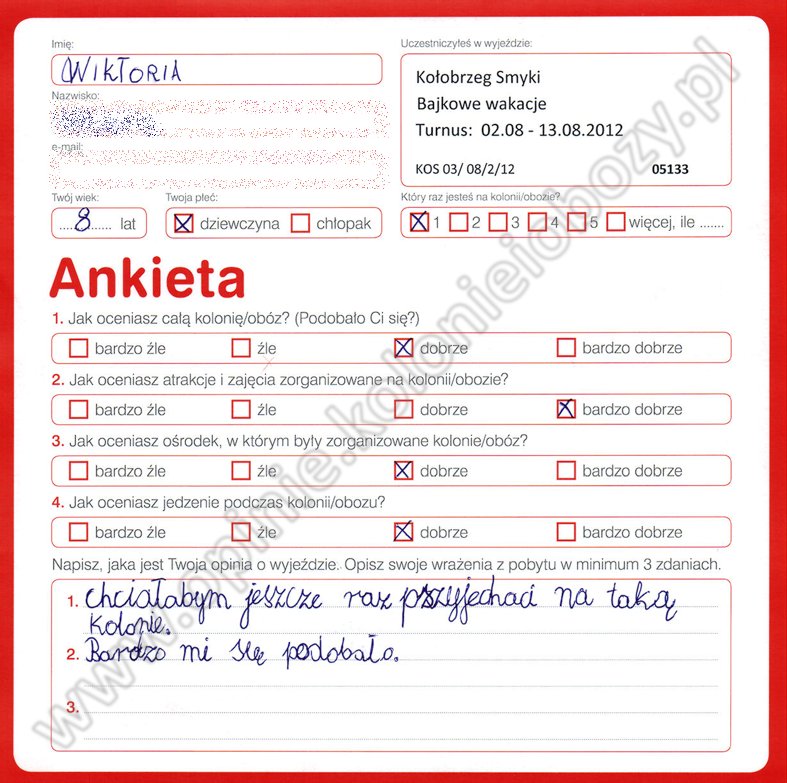 Imię:
WIKTORIA
Nazwisko:
e-mail:
Twój wiek:
....8...... lat
Twoja płeć:
dziewczyna chłopak
Uczestniczyłeś w wyjeździe:
Kołobrzeg Smyki
Bajkowe wakacje
Turnus: 02.08 - 13.08.2012
KOS 03/ 08/2/12 05133
Który raz jesteś na kolonii/obozie?
1 2 3 4 5 więcej, ile .......
Ankieta
1. Jak oceniasz całą kolonię/obóz? (Podobało Ci się?)
bardzo źle źle dobrze bardzo dobrze
2. Jak oceniasz atrakcje i zajęcia zorganizowane na kolonii/obozie?
bardzo źle źle dobrze bardzo dobrze
3. Jak oceniasz ośrodek, w którym były zorganizowane kolonie/obóz?
bardzo źle źle dobrze bardzo dobrze
4. Jak oceniasz jedzenie podczas kolonii/obozu?
bardzo źle źle dobrze bardzo dobrze
Napisz, jaka jest Twoja opinia o wyjeździe. Opisz swoje wrażenia z pobytu w minimum 3 zdaniach.
1. chciałabym jeszcze raz przyjechać na taką
kolonie.
2. Bardzo mi się podobało.
3.
www.opinie.kolonieiobozy.pl